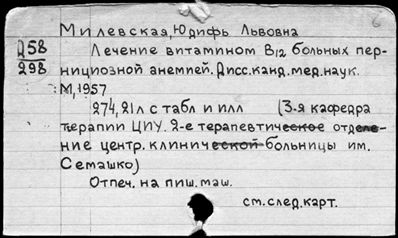 6
Милевская, Юдифь Львовна
Д58
298
Лечение витамином B12 больных пер-
нициозной анемией. Дисс. канд. мед. наук.
М, 1957
274, 21л с табл и илл (3-я кафедра
терапии ЦИУ. 2-е терапевтическое отделе-
ние центр. клинической больницы им.
Семашко)
Отпеч. на пиш. маш.
см. след. карт.